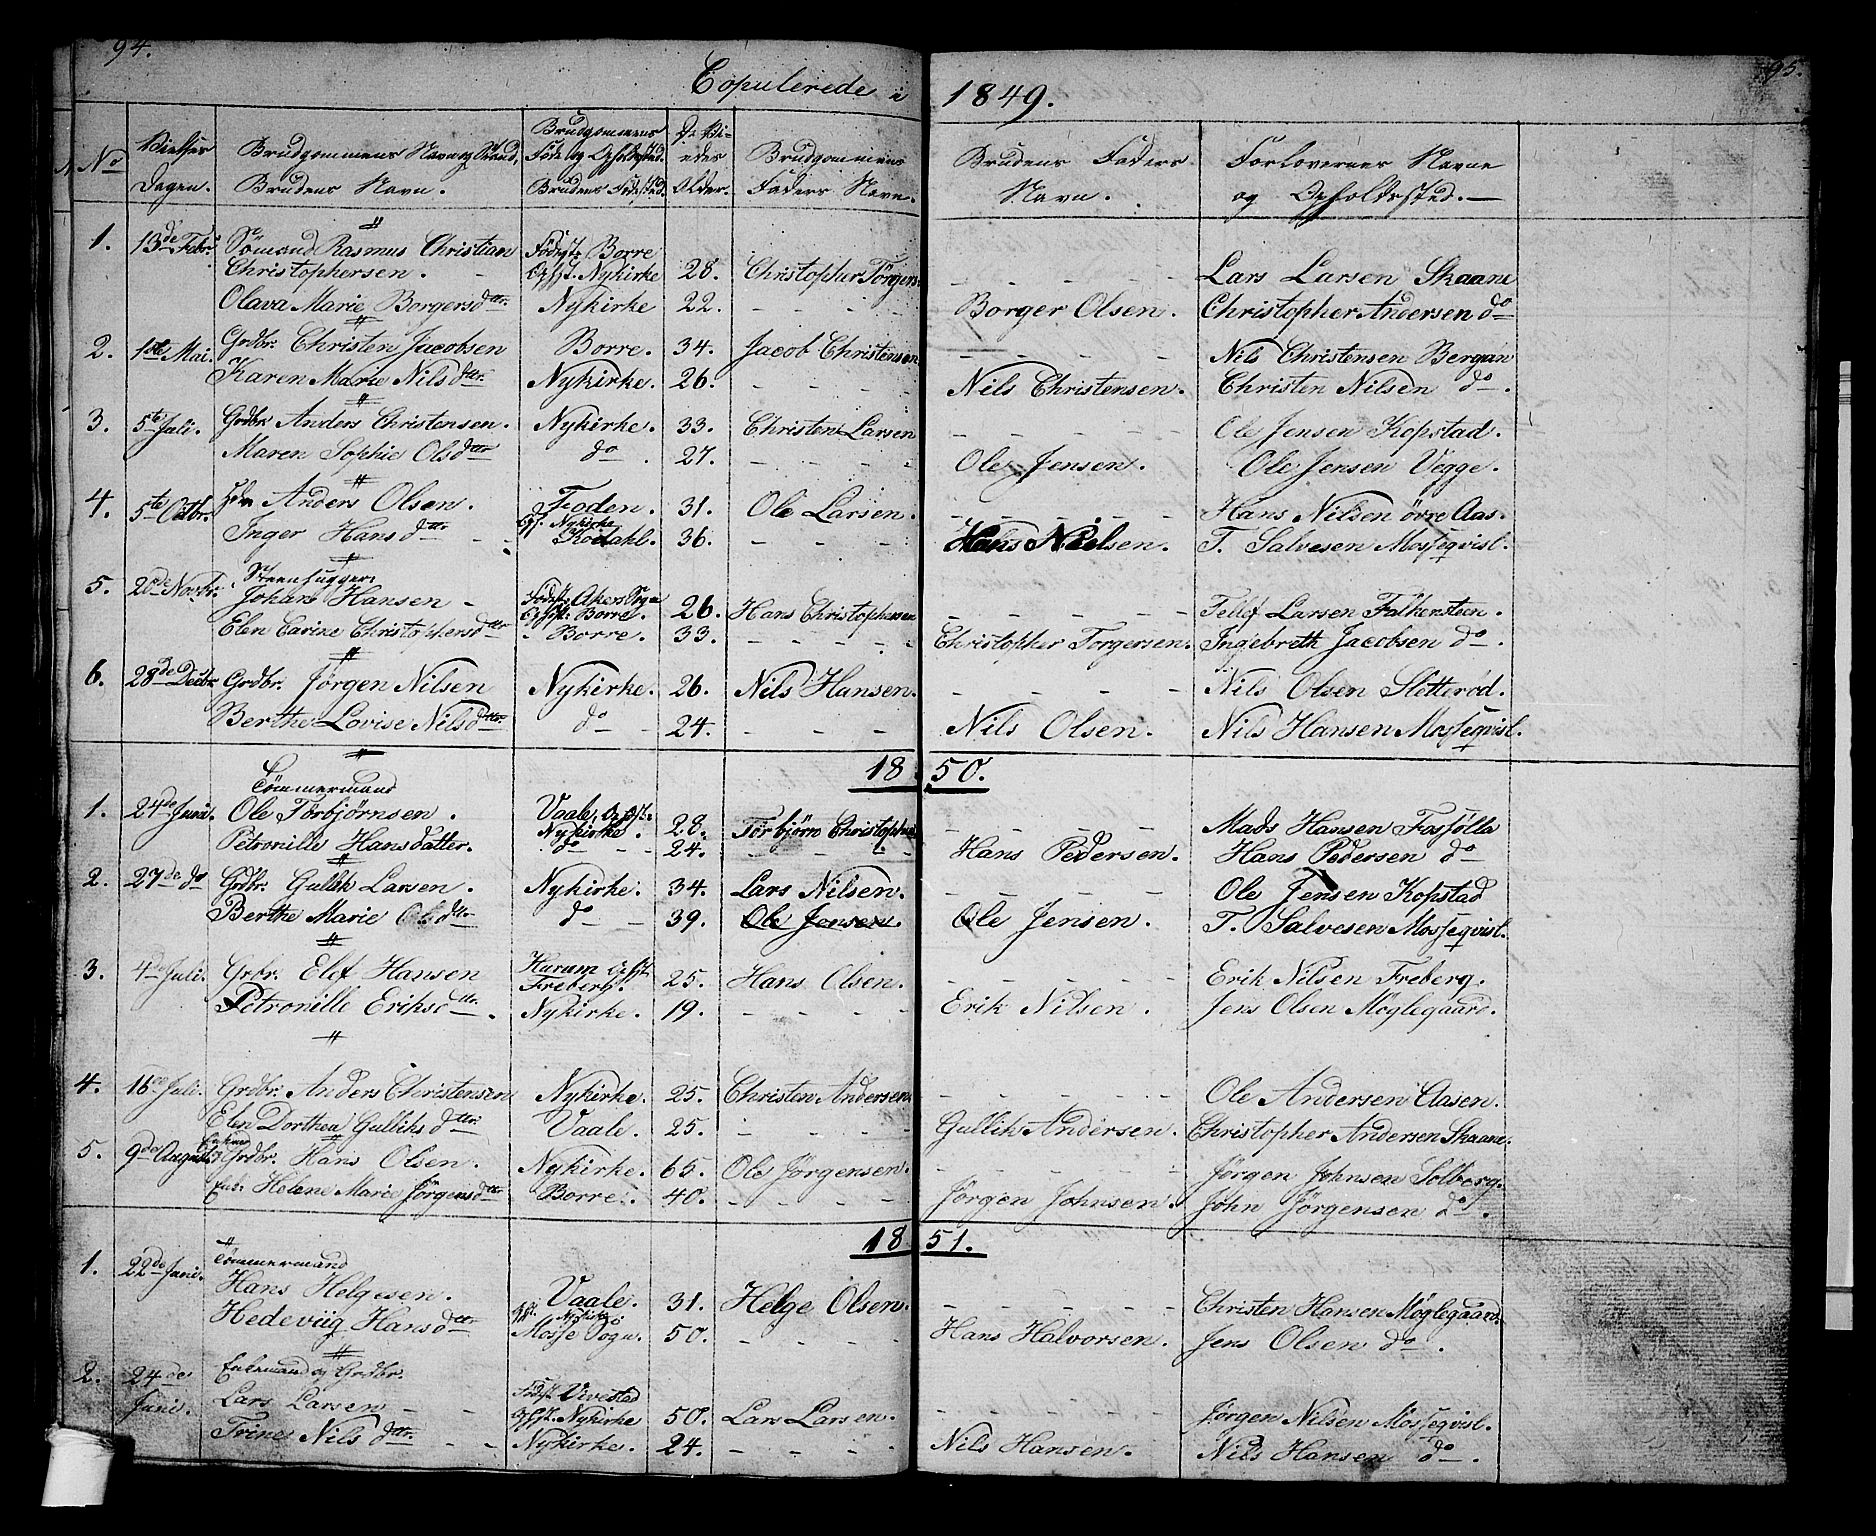 94.
95.
Copulerede i 1849.
No
Vielses Dagen.
Brudgommens Navn og Stand, Brudens Navn.
Brudgommens Føde og Opholdssted. Brudens Fødested.
De Viedes Alder.
Brudgommens Faders Navn.
Brudens Faders Navn.
Forlovernes Navne og Opholdssted.
1. 13de Febr. Sømand Rasmus Christian Fødest. Borre
Christophersen. Ophst. Nykirke 28. Christopher Törgers. Lars Larsen Skaane
Olava Marie Borgersdtter Nykirke 22. Borger Olsen. Christopher Andersen do
2. 1ste Mai. Grdbr. Christen Jacobsen Borre. 34. Jacob Christensen Nils Christensen Bergan
Karen Marie Nilsdtter. Nykirke. 26. Nils Christensen. Christen Nilsen do.
3. 5te Juli. Grdbr. Anders Christensen. Nykirke. 33. Christen Larsen Ole Jensen Kopstad.
Maren Sophie Olsdtter do. 27. Ole Jensen. Ole Jensen Vegge.
4. 5te Octbr. Anders Olsen. Foden. 31. Ole Larsen. Hans Nilsen örre Aas.
Inger Hansdtter Ops. Nykirke Kodahl. 36. Hans Nielsen. T. Salvesen Mosseqvisl.
5. 20de Novbr. Steenhugger
Johan Hansen Fødest. Akers Sogn Ophst. Borre. 26. Hans Christophersen Tellef Larsen Falkensteen.
Elen Carine Christophersdtter Borre. 33. Christopher Torgersen. Ingebreth Jacobsen do.
6. 28de Decbr. Grdbr. Jørgen Nilsen Nykirke. 26. Nils Hansen. Nils Olsen Sletteröd.
Berthe Lovise Nilsdtter do 24. Nils Olsen. Nils Hansen Mosseqvisl.
1850.
Tömmermand
1. 24de Juni. Ole Torbjørnsen. Vaale, Ophst. Nykirke. 28. Torbjörn Christophs. Mads Hansen Fossolla
Petronille Hansdatter. do 24. Hans Pedersen. Hans Pedersen do
2. 27de do Grdbr. Gullik Larsen. Nykirke. 34. Lars Nilsen. Ole Jensen Kopstad
Berthe Marie Olsdtter do 39. Ole Jensen. Ole Jensen. T. Salvesen Mosseqvisl.
3. 4de Juli. Grbr. Elef Hansen Hurum Ophst. Freberg. 25. Hans Olsen. Erik Nilsen Freberg.
Petronille Eriksdtter. Nykirke. 19. Erik Nilsen. Jens Olsen Möglegaard.
4. 16de Juli. Grdbr. Anders Christensen Nykirke. 25. Christen Andersen. Ole Andersen Aasen.
Elen Dorthea Gulliksdtter. Vaale. 25. Gullik Andersen. Christopher Andersen Skaane.
5. 9de August Enkem. Grdbr. Hans Olsen. Nykirke. 65. Ole Jörgensen. Jörgen Johnsen Solberg.
Enke Helene Marie Jörgensdtter Borre. 40. Jörgen Johnsen. John Jörgensen do.
1851.
1. 22de Juni. Tömmermand
Hans Helgesen. Vaale. 31. Helge Olsen. Christen Hansen Möglegaard.
Hedevig Hansdtter Nykirke Mosse Sogn. 50. Hans Halvorsen. Jens Olsen do.
2. 24de Juni. Enkemand og Grdbr.
Lars Larsen Fødst. Vivestad Ophst. Nykirke 50. Lars Larsen. Jörgen Nilsen Mosseqvisl.
Trine Nilsdtter. Nykirke. 24. Nils Hansen. Nils Hansen do.